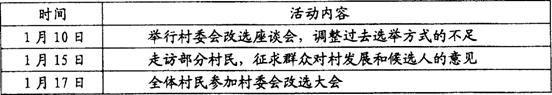 时间 活动内容
1月10日 举行村委会改选座谈会，调整过去选举方式的不足
1月15日 走访部分村民，征求群众对村发展和候选人的意见
1月17日 全体村民参加村委会改选大会